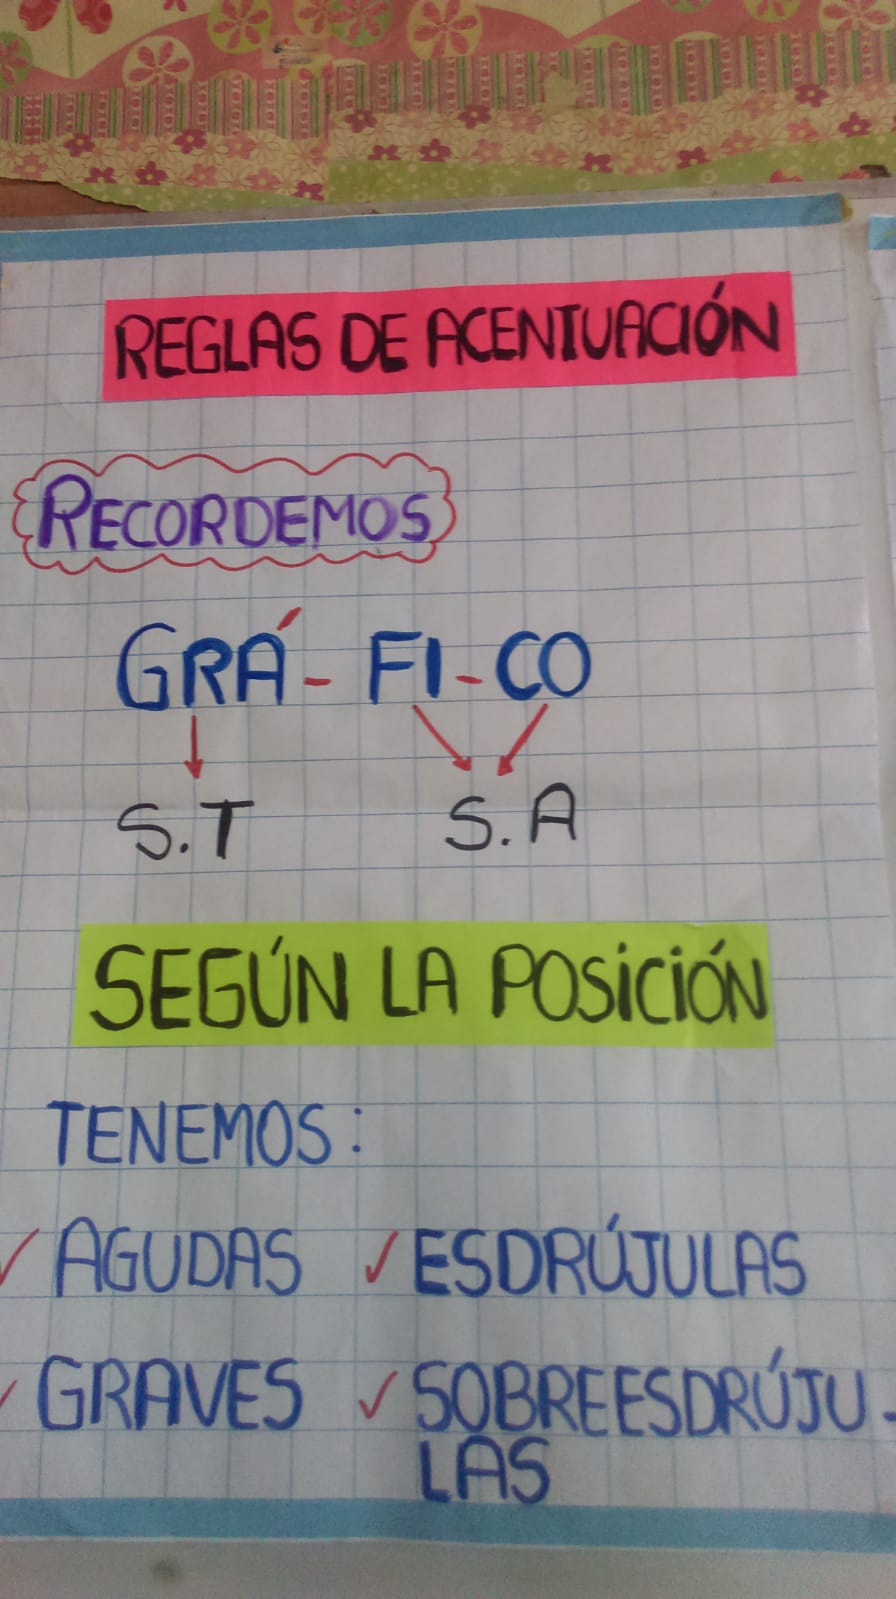 REGLAS DE ACENTUACIÓN
RECORDEMOS
GRÁ - FI - CO
S.T S.A
SEGÚN LA POSICIÓN
TENEMOS:
✓ AGUDAS ✓ ESDRÚJULAS
✓ GRAVES ✓ SOBREESDRÚJU-
LAS